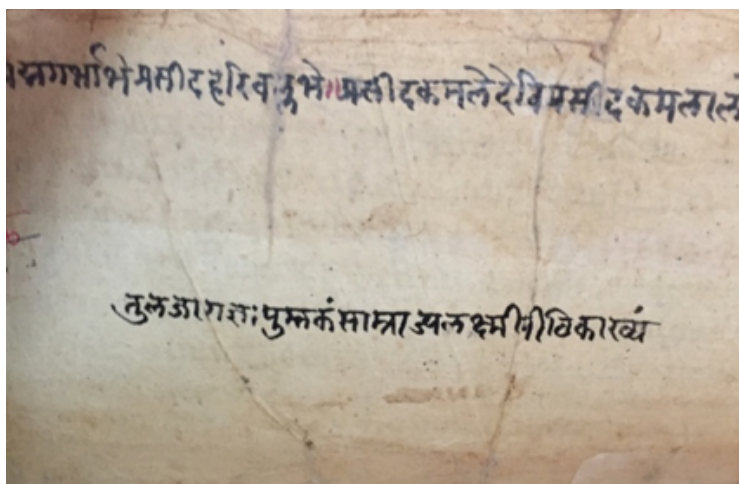 द्मगर्भाभेप्रसीदहरिवल्लभे॥प्रसीदकमलेदेविप्रसीदकमलाल
तुलजाराजः पुस्तकंसाम्राज्यलक्ष्मीपीठिकाख्यं